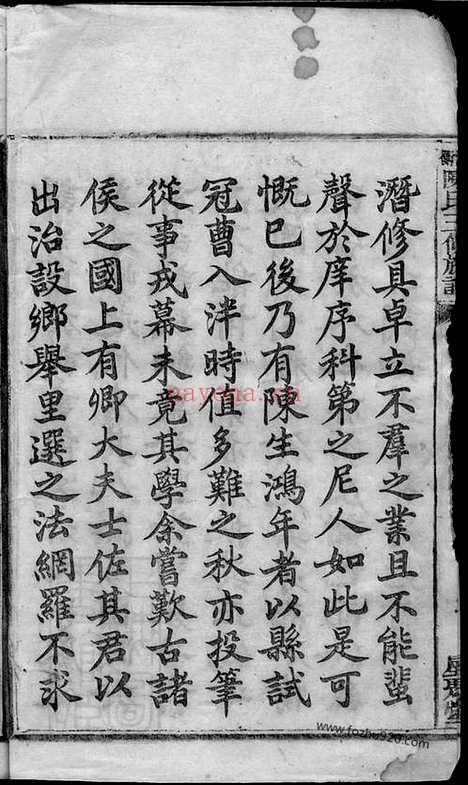 陳氏三修族譜
潛修具卓立不羣之業且不能蜚
聲於庠序科第之尼人如此是可
慨已後乃有陳生鴻年者以縣試
冠曹入泮時值多難之秋亦投筆
從事戎幕未竟其學余嘗歎古諸
侯之國上有卿大夫士佐其君以
出治設鄉舉里選之法網羅不求
nayona.cn
www.fozhu920.com